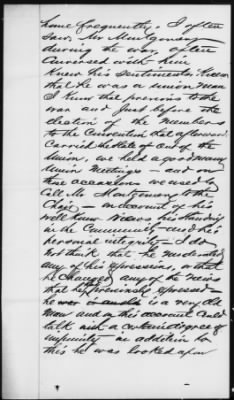 home frequently. I often
saw Mr Montgomery
during the war, often
conversed with him
knew his sentiments. Knew
that he was a union man
I know that previous to the
war and just before the
election of the member
to the Convention that afterward
carried the State of out of the
Union, we held a good many
Union Meetings — and on
those occasions we used to
call Mr Montgomery to the
Chair — on account of his
well known views his standing
in the Community — and his
personal integrity — I do
not think that he moderated
any of his expressions, or that
he changed any of the views
that he previously expressed —
he was is a very old
man and on this account could
talk with a certain degree of
impunity in addition to
this he was looked upon